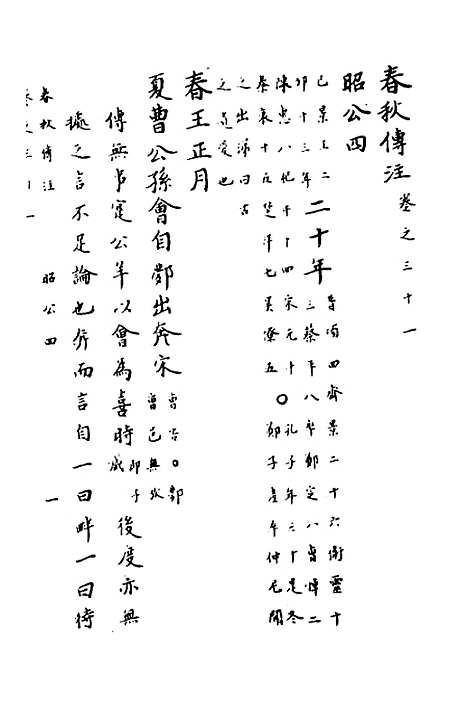 春秋傳注 卷之三十一
昭公四
己景王二 二十年 晉頃四齊景二十六衛靈十
卯十三年 三蔡平八卒鄭定八曹悼二
陳惠八杞平十四宋元十〇孔子年三十是冬
秦哀十五楚平七吳僚五〇鄭子產卒仲尼聞
之出涕曰古
之遺愛也
春王正月
夏曹公孫會自鄸出奔宋 〇鄸
曹邑無
傳無 公羊以會為喜時 即子臧 後度亦無
據之言不足論也 而言自一曰畔一曰待
春秋傳注 昭公四 一
卷之三十一